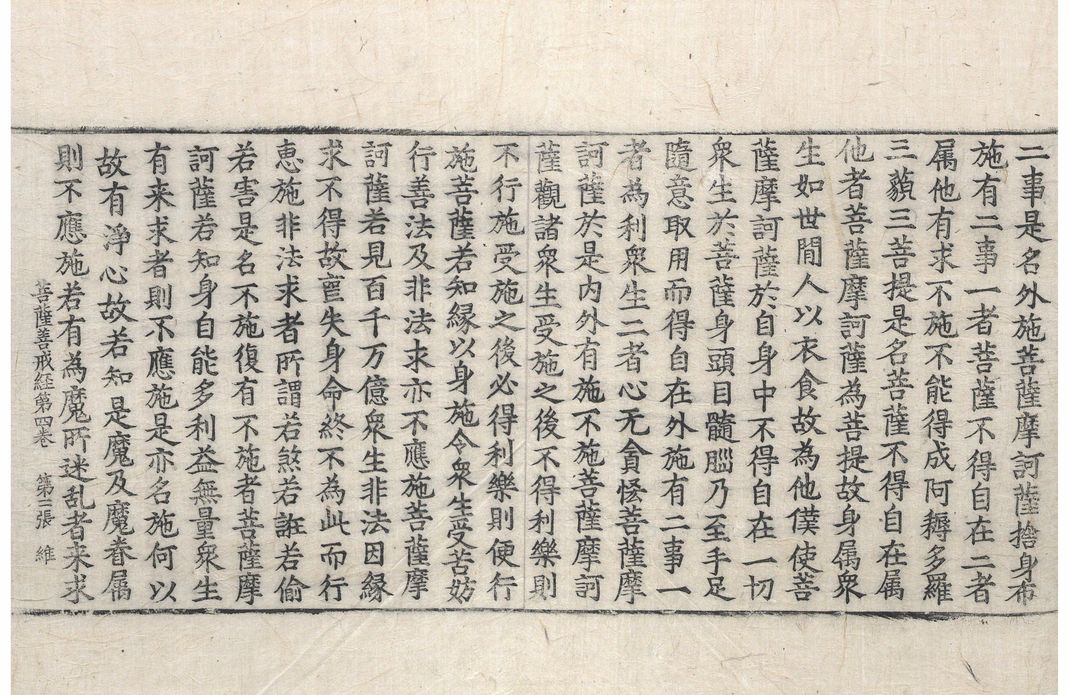 二事是名外施菩薩摩訶薩捨身布
施有二事一者菩薩不得自在二者
属他有求不施不能得成阿耨多羅
三藐三菩提是名菩薩不得自在属
他者菩薩摩訶薩為菩提故身属衆
生如世間人以衣食故為他僕使菩
薩摩訶薩於自身中不得自在一切
衆生於菩薩身頭目髓腦乃至手足
隨意取用而得自在外施有二事一
者為利衆生二者心无貪悋菩薩摩
訶薩於是内外有施不施菩薩摩訶
薩觀諸衆生受施之後不得利樂則
不行施受施之後必得利樂則便行
施菩薩若知縁以身施令衆生受苦妨
行善法及非法求亦不應施菩薩摩
訶薩若見百千万億衆生非法因縁
求不得故寧失身命終不為此而行
恵施非法求者所謂若煞若誑若偷
若害是名不施復有不施者菩薩摩
訶薩若知身自能多利益無量衆生
有来求者則不應施是亦名施何以
故有淨心故若知是魔及魔眷属
則不應施若有為魔所迷乱者来求
菩薩善戒経第四卷 第二張 維